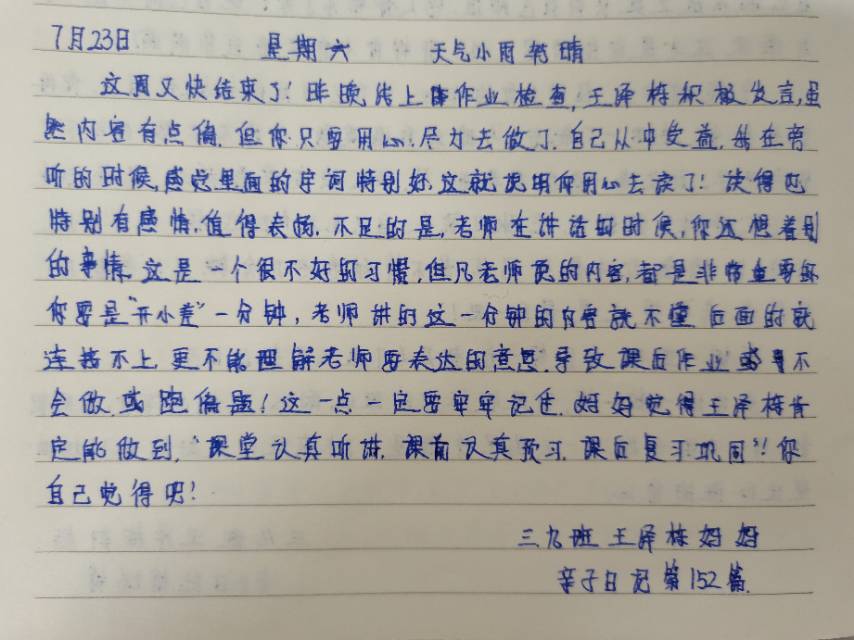 7月23日 星期六 天气小雨转晴
这周又快结束了!昨晚线上作业检查,王泽栋积极发言,虽
然内容有点偏,但你只要用心,尽力去做了,自己从中受益,我在旁
听的时候,感觉里面的字词特别好,这就说明你用心去读了!读得也
特别有感情,值得表扬,不足的是,老师在讲话的时候,你还想着别
的事情,这是一个很不好的习惯,但凡老师说的内容,都是非常重要的
你要是"开小差"一分钟,老师讲的这一分钟的内容就不懂后面的就
连接不上,更不能理解老师要表达的意思,导致课后作业或 不
会做或跑偏题!这一点一定要牢牢记住,妈妈觉得王泽栋肯
定能做到,"课堂认真听讲,课前认真预习,课后复习巩固"!你
自己觉得呢!
三九班 王泽栋妈妈
亲子日记第152篇.